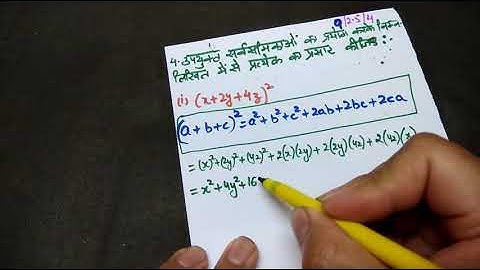 9/2.5/4
4. उपयुक्त सर्वसमिकाओं का प्रयोग करके निम्न-
लिखित में से प्रत्येक का प्रसार कीजिए :
(i) (x+2y+4z)²
(a+b+c)²=a²+b²+c²+2ab+2bc+2ca
=(x)²+(2y)²+(4z)²+2(x)(2y)+2(2y)(4z)+2(4z)(x)
=x²+4y²+16